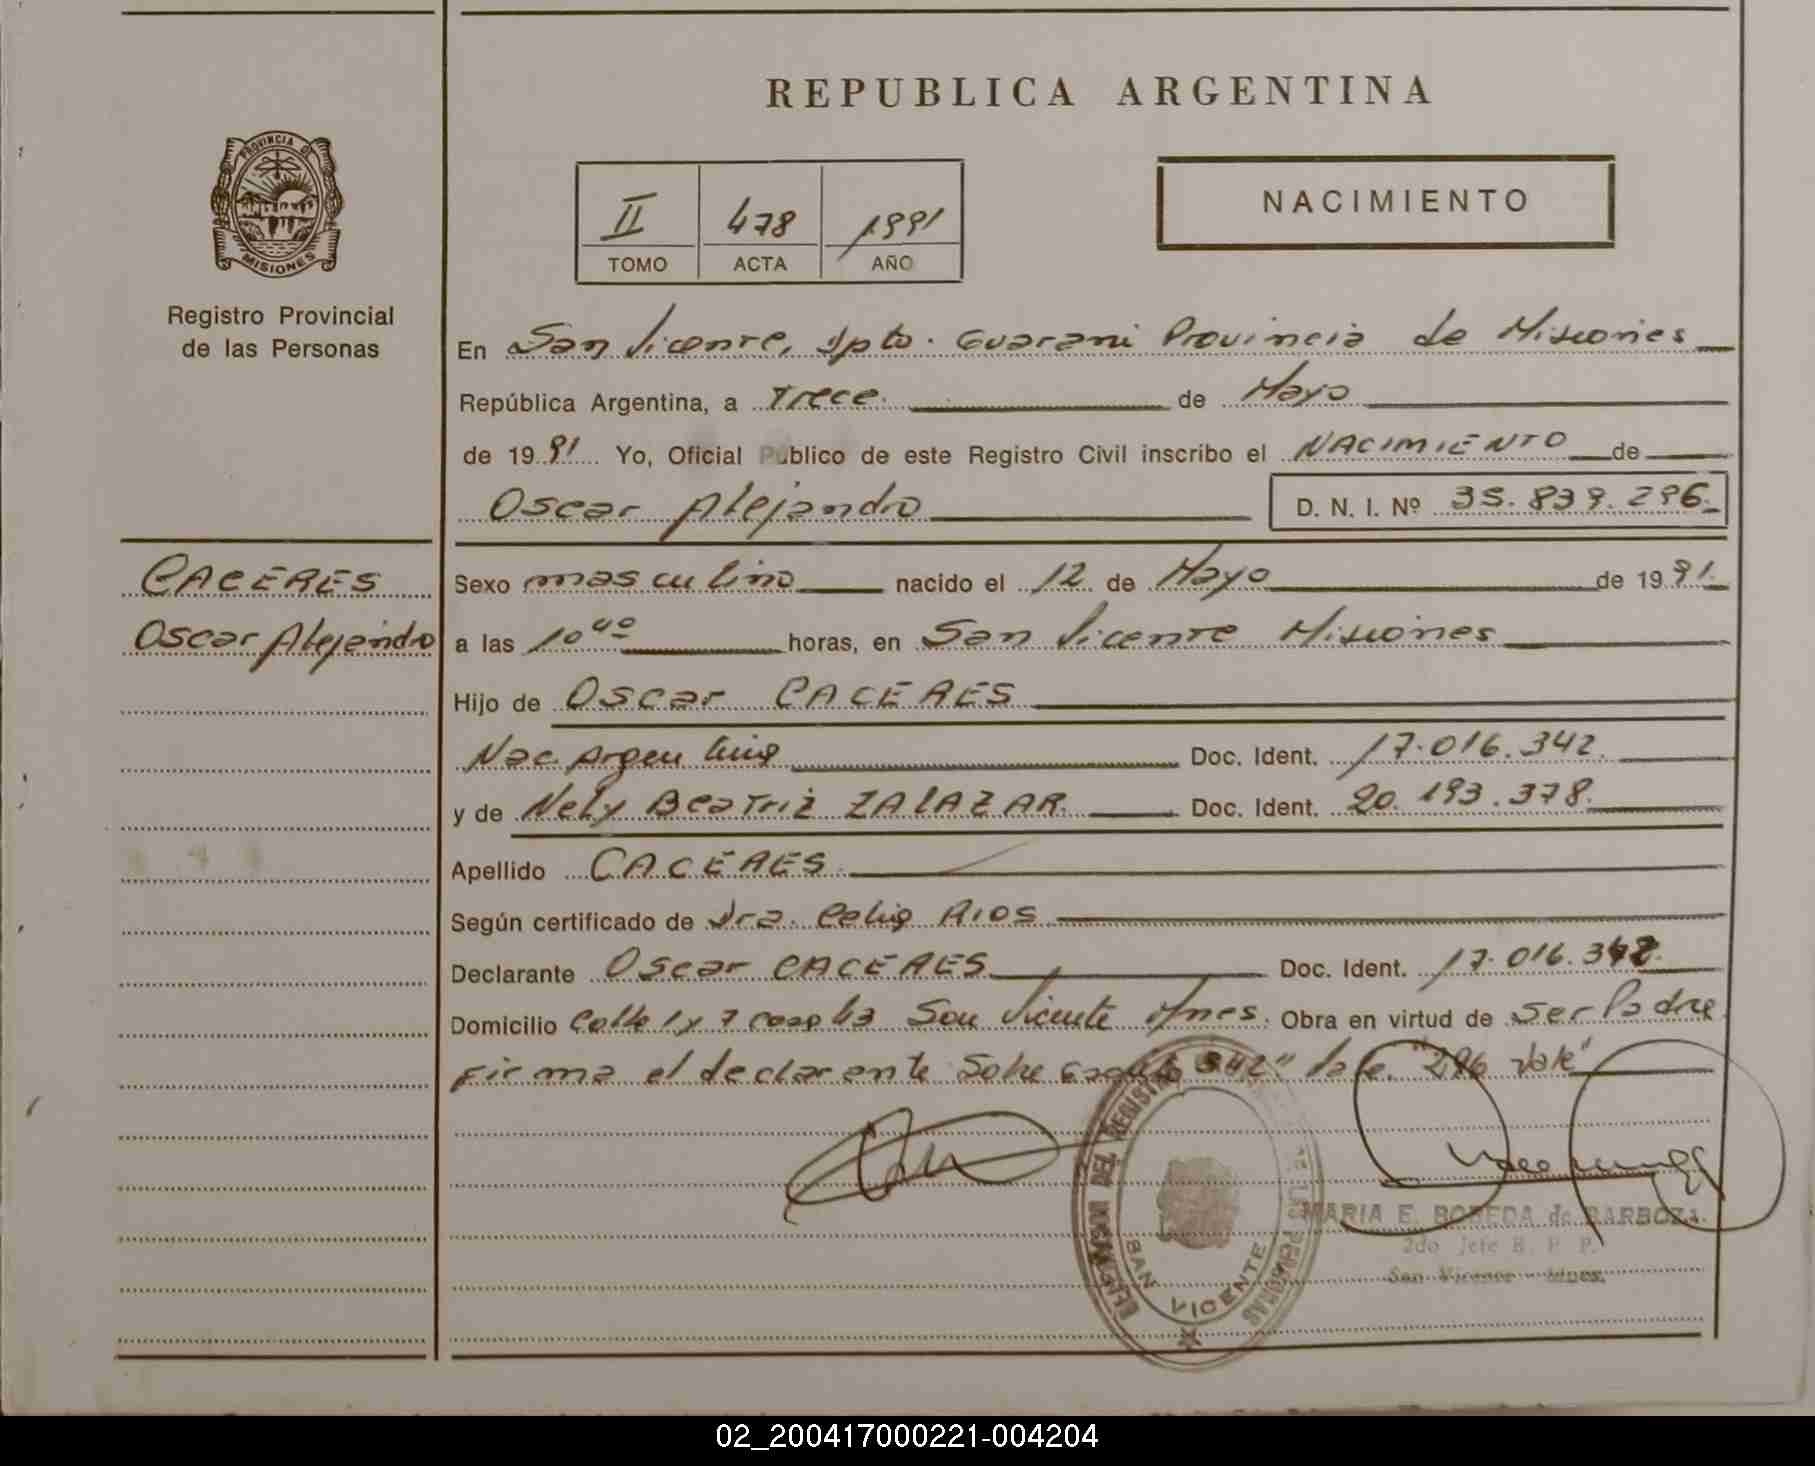 REPUBLICA ARGENTINA
PROVINCIA DE
MISIONES
Registro Provincial
de las Personas
II 478 1991
TOMO ACTA AÑO
NACIMIENTO
En San Vicente, Dpto. Guarani Provincia de Misiones
República Argentina, a Trece de Mayo
de 1991 Yo, Oficial Público de este Registro Civil inscribo el NACIMIENTO de
Oscar Alejandro D. N. I. Nº 35.839.296
CACERES
Oscar Alejandro
Sexo masculino nacido el 12 de Mayo de 1991
a las 10 40 horas, en San Vicente Misiones
Hijo de Oscar CACERES
Nac. Argentina Doc. Ident. 17.016.342
y de Nely Beatriz ZALAZAR Doc. Ident. 20.193.378
Apellido CACERES
Según certificado de Dra. Celia RIOS
Declarante Oscar CACERES Doc. Ident. 17.016.342
Domicilio Calle 1 y 7 casa 43 San Vicente Mnes. Obra en virtud de ser Padre
Firma el declarante Sobre 342" Vale. "296 vale"
DEL REGISTRO
SAN VICENTE
MARIA E. BOBEDA de BARBOZA
2do Jefe R. P. P.
San Vicente - Mnes.
02_200417000221-004204